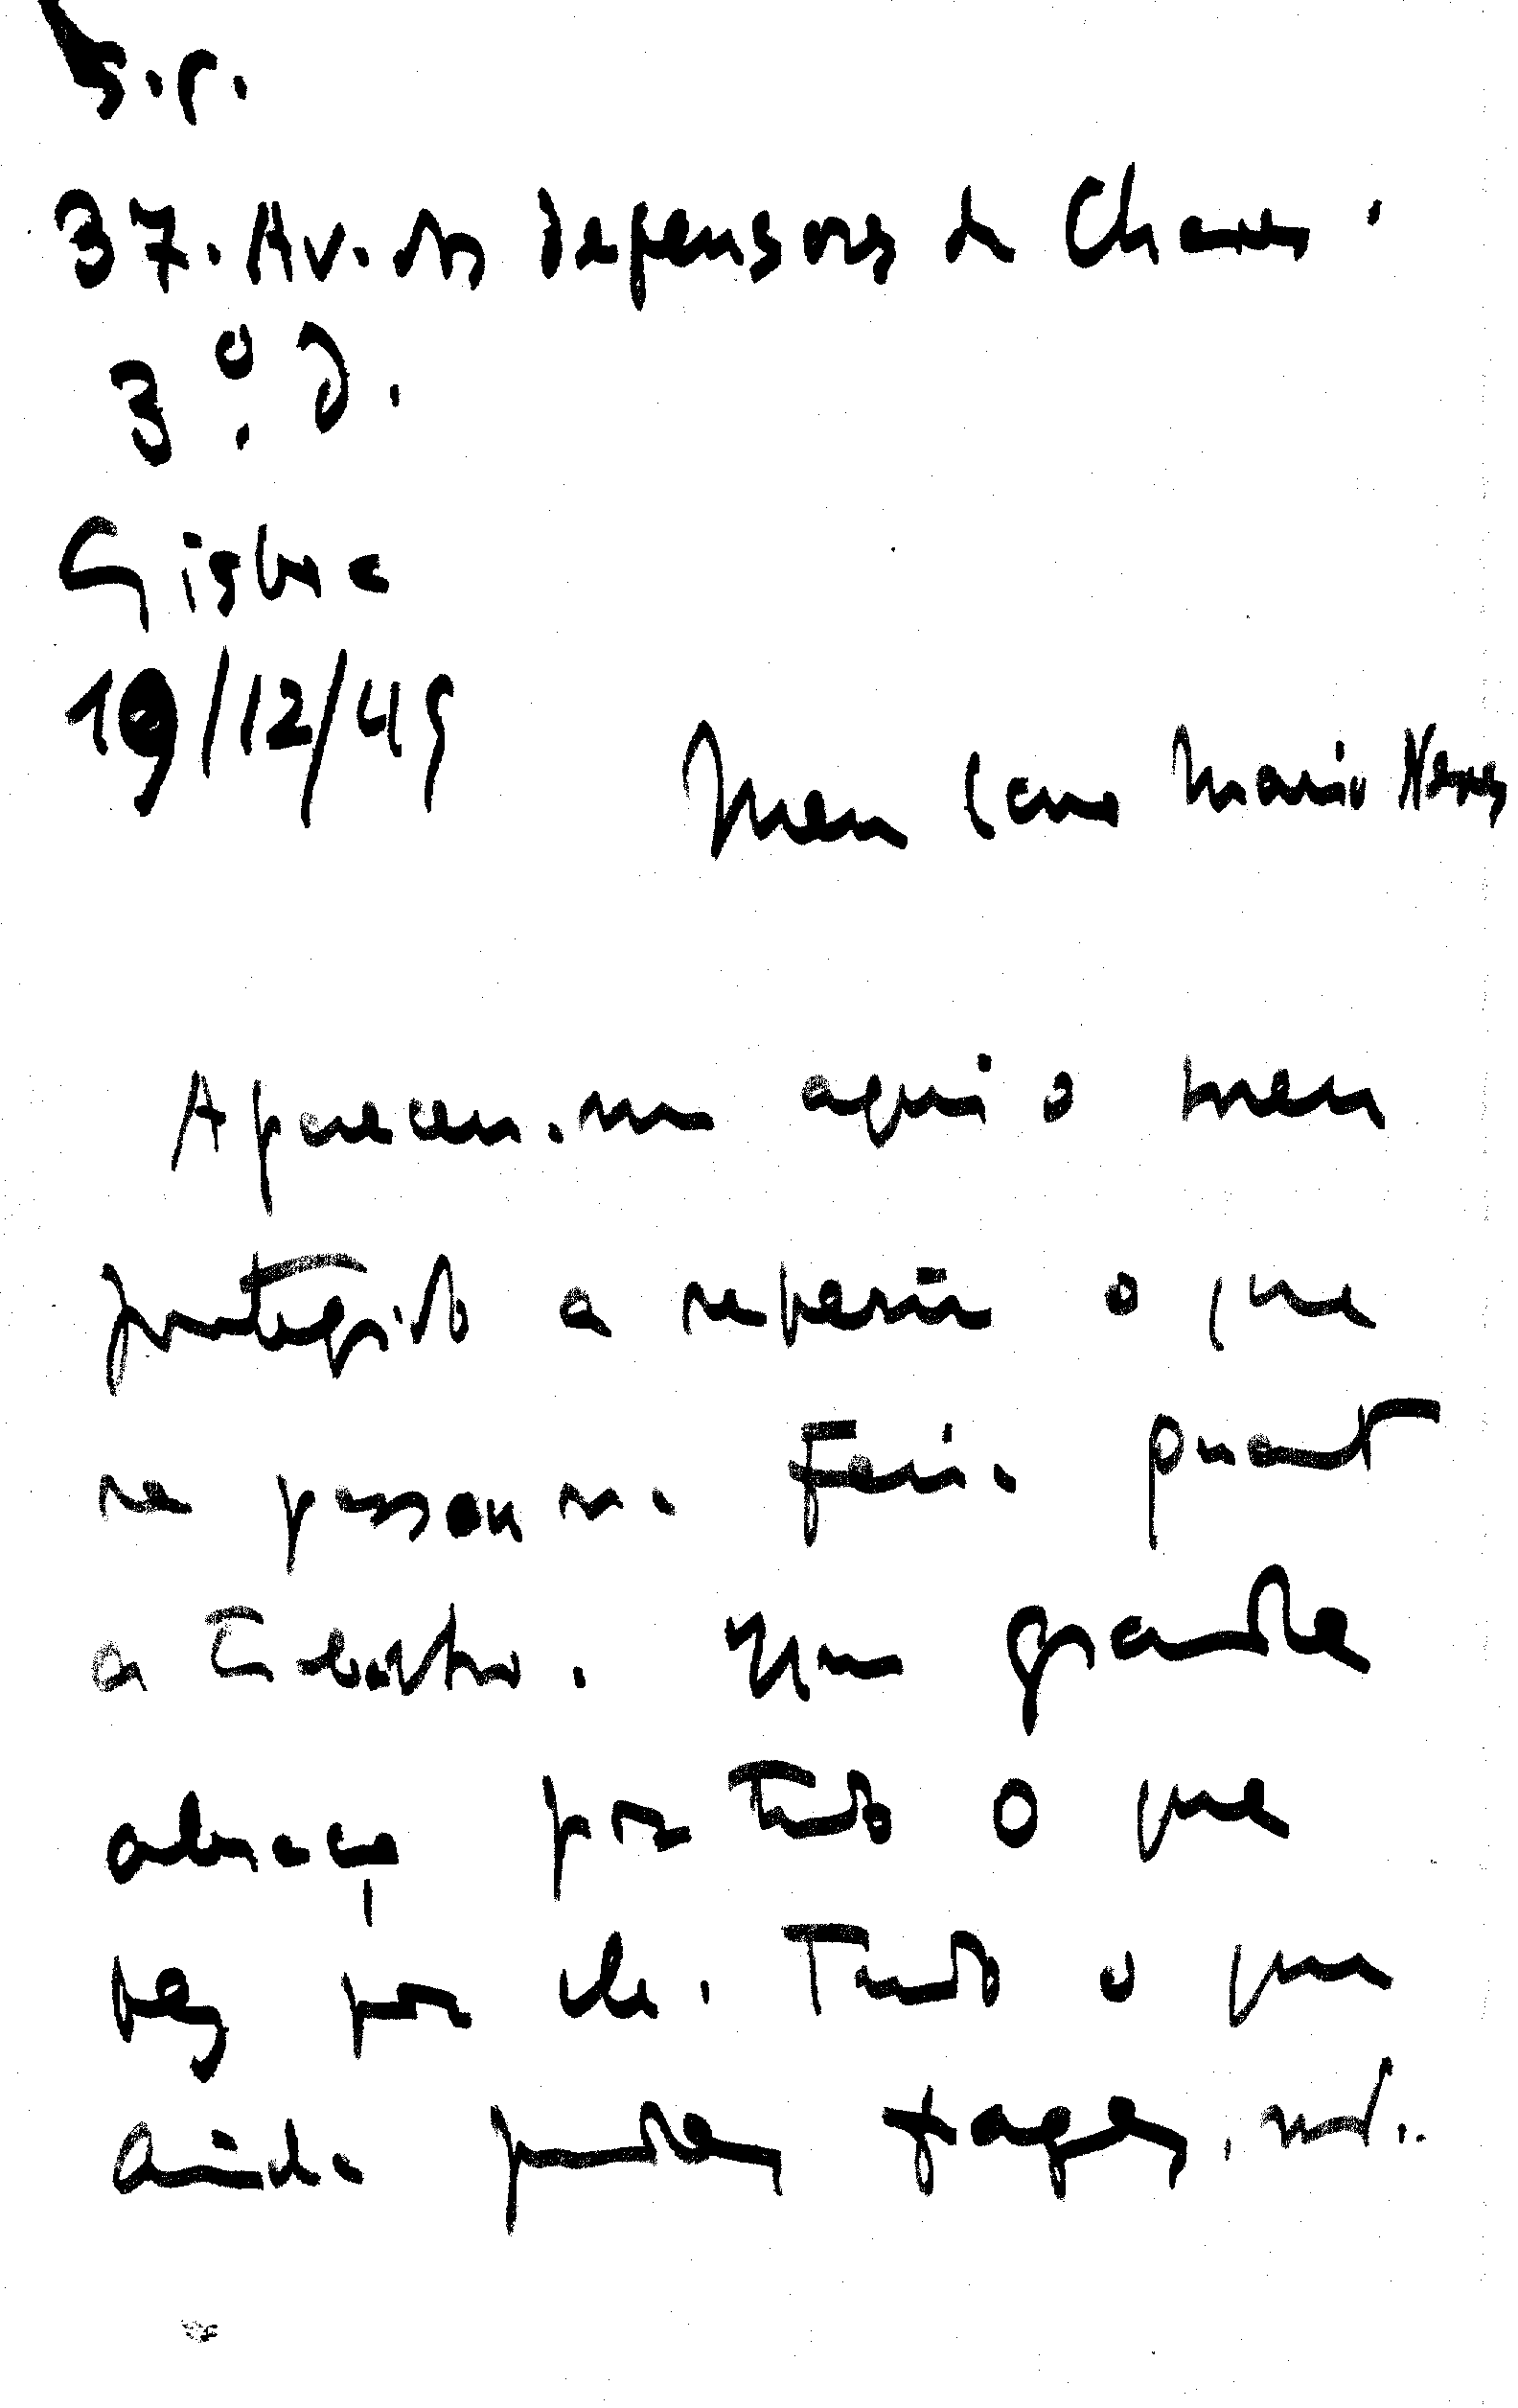 S.C.
37. Av. dos Defensores de Chaves.
3.º D.
Lisboa
19/12/49
Meu Caro Mario Neves
Apareceu-me aqui o meu
protegido a referir o que
se passou. Feriu. quanto
a trabalho. Um grande
abraço por tudo o que
fez por ele. Tudo o que
ainda puder fazer,